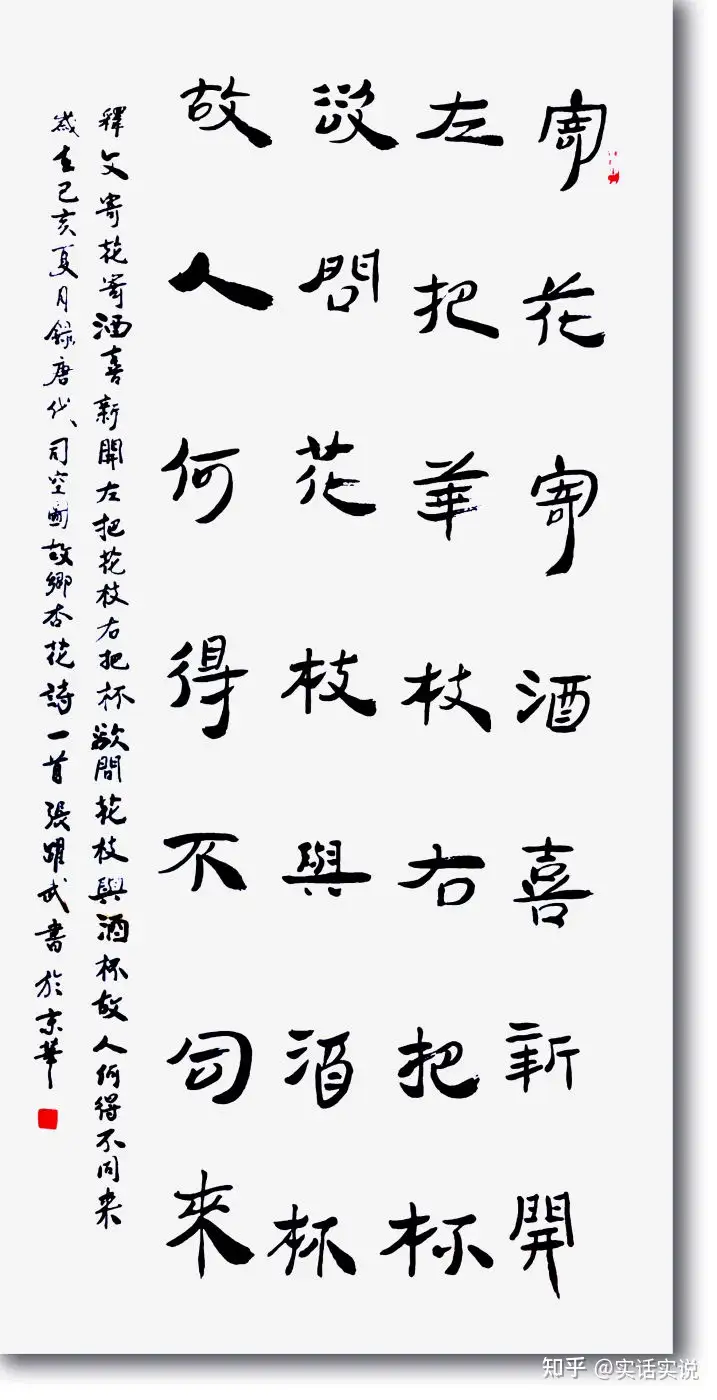 寄花寄酒喜新開
左把華枝右把杯
欲問花枝與酒杯
故人何得不同來
釋文寄花寄酒喜新開左把花枝右把杯欲問花枝與酒杯故人何得不同来
歲在己亥夏月錄唐代司空圖故鄉杏花詩一首張躍武書於京華
知乎 @实话实说